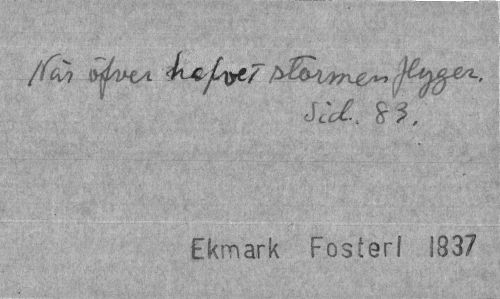 När öfver hafvet stormen flyger.
Sid. 83.
Ekmark Fosterl 1837